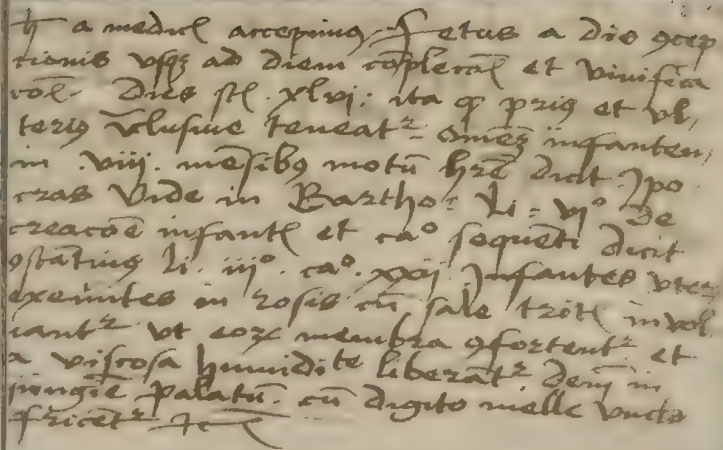 h a medicꝭ accepimꝰ fetus a die ꝯcep
tionis vsqꝫ ad diem cōplecōꝭ et vivifica
coꝭ Dies scꝭ xlvi ita ꝙ priꝰ et vl
teriꝰ teneatꝛ omēꝫ infantem
in viii mēsibꝰ motū hr̄e dicit Ipo
cras Vide in Bartho li vi° de
creacōe infantꝭ et ca° sequēti dicit
ꝯstātinꝰ li iii° ca° xxii Infantes vteꝝ
exeūtes in rosis cū sale tritꝭ invol
vantꝛ vt eoꝝ membra ꝯfortentꝛ et
a viscosa humidi te liberātꝛ Deīn in
iūgīe palatū cū digito melle vncto
fricentꝛ